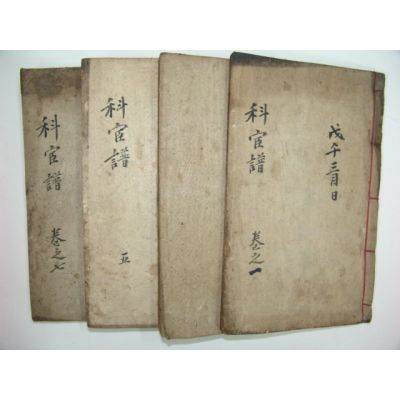 科宦譜
卷之七
科宦譜
五
科宦譜
卷之一
戊午三月日